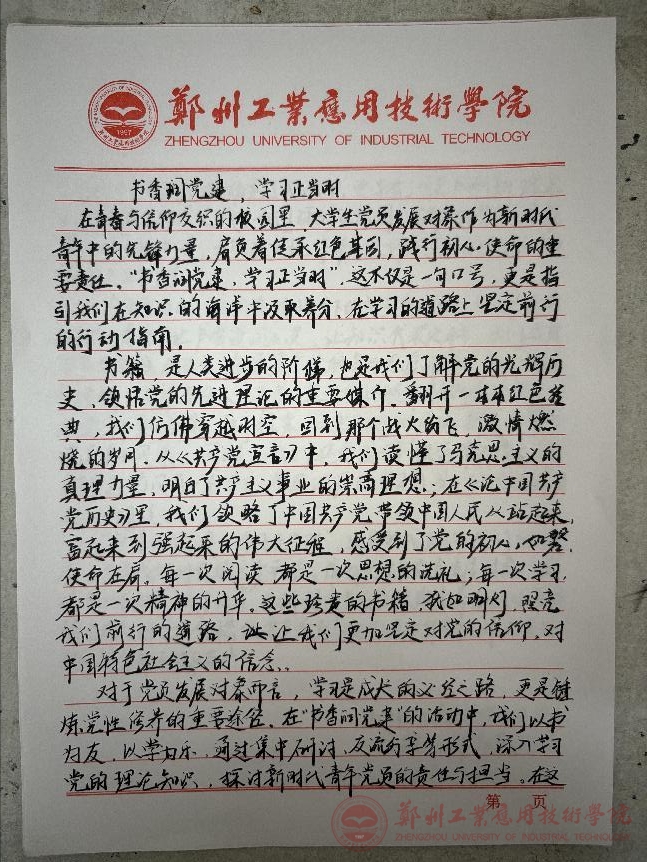 鄭州工業應用技術學院
ZHENGZHOU UNIVERSITY OF INDUSTRIAL TECHNOLOGY
1997
书香润党建，学习正当时
在青春与信仰交织的校园里，大学生党员发展对象作为新时代
青年中的先锋力量，肩负着传承红色基因，践行初心使命的重
要责任。“书香润党建，学习正当时”，这不仅是一句口号，更是指
引我们在知识的海洋中汲取养分，在学习的道路上坚定前行
的行动指南。
书籍，是人类进步的阶梯，也是我们了解党的光辉历
史、领悟党的先进理论的重要媒介。翻开一本本红色经
典，我们仿佛穿越时空，回到那个战火纷飞、激情燃
烧的岁月。从《共产党宣言》中，我们读懂了马克思主义的
真理力量，明白了共产主义事业的崇高理想；在《论中国共产
党历史》里，我们领略了中国共产党带领中国人民从站起来、
富起来到强起来的伟大征程，感受到了党的初心如磐、
使命在肩。每一次阅读都是一次思想的洗礼；每一次学习，
都是一次精神的升华。这些珍贵的书籍，我如明灯，照亮
我们前行的道路，让我们更加坚定对党的信仰，对
中国特色社会主义的信念。
对于党员发展对象而言，学习是成长的必经之路，更是锤
炼党性修养的重要途径。在“书香润党建”的活动中，我们以书
为友，以学为乐，通过集中研讨、交流分享等形式，深入学习
党的理论知识，探讨新时代青年党员的责任与担当。在这
第 页
鄭州工業應用技術學院
ZHENGZHOU UNIVERSITY OF INDUSTRIAL TECHNOLOGY